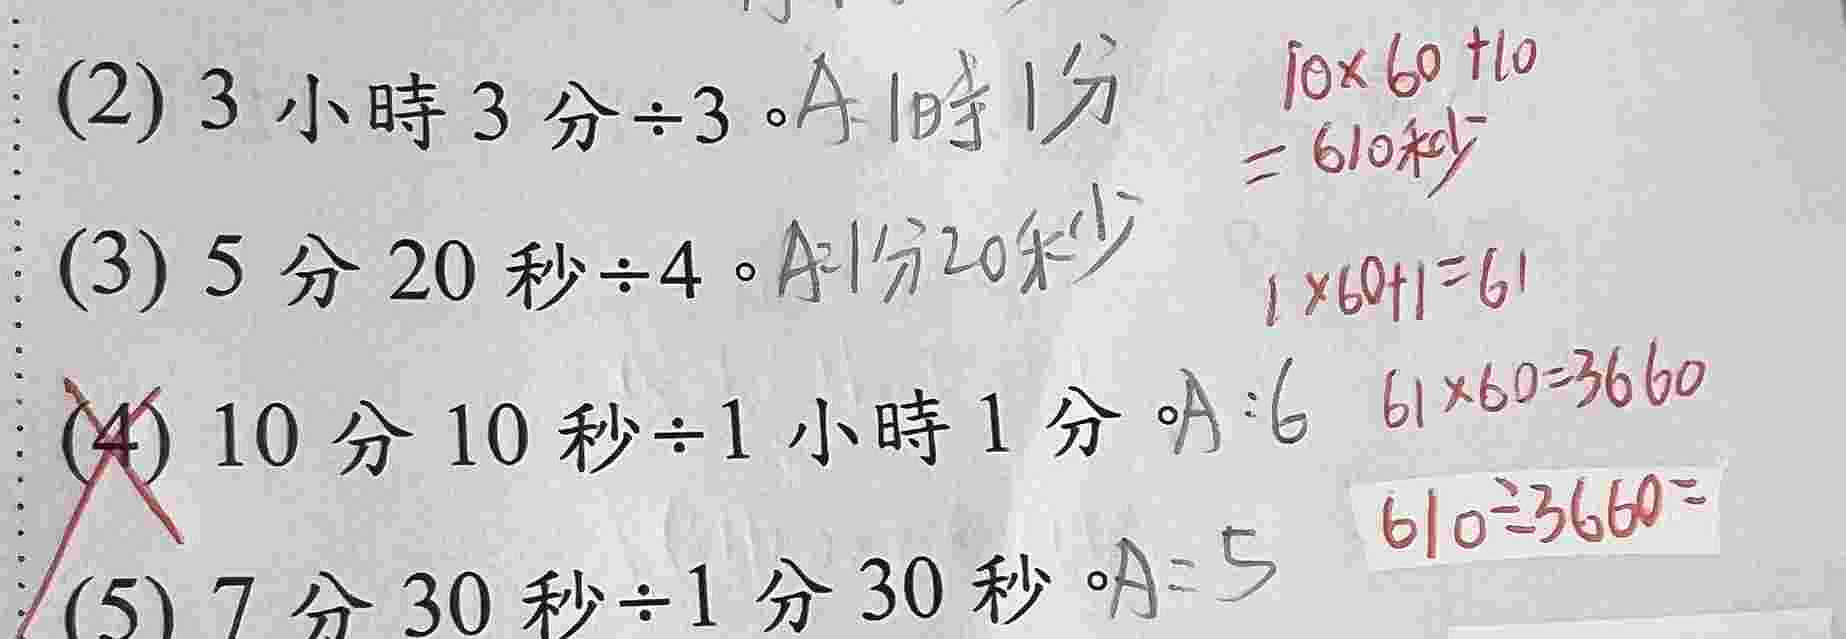 (2) 3 小時 3 分÷3。A: 1時1分
10×60+10
=610秒
(3) 5 分 20 秒÷4。A:1分20秒
1×60+1=61
(4) 10 分 10 秒÷1 小時 1 分。A:6
61×60=3660
610÷3660=
(5) 7 分 30 秒÷1 分 30 秒。A=5